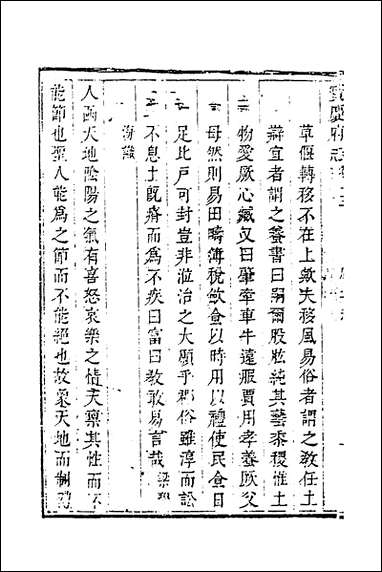 草偃轉移不在上歟夫移風易俗者謂之教任土
辯宜者謂之養書曰嗣爾股肱純其藝黍稷惟土
物愛厥心臧又曰肇牽車牛遠服賈用孝養厥父
母然則易田疇薄稅歛食以時用以禮使民食日
足比戶可封豈非蒞治之大願乎郡俗雖淳而訟
不息土既瘠而爲不疾曰富曰教敢易言哉
人函天地陰陽之氣有喜怒哀樂之情天稟其性而不
能節也聖人能爲之節而不能絕也故象天地而制禮